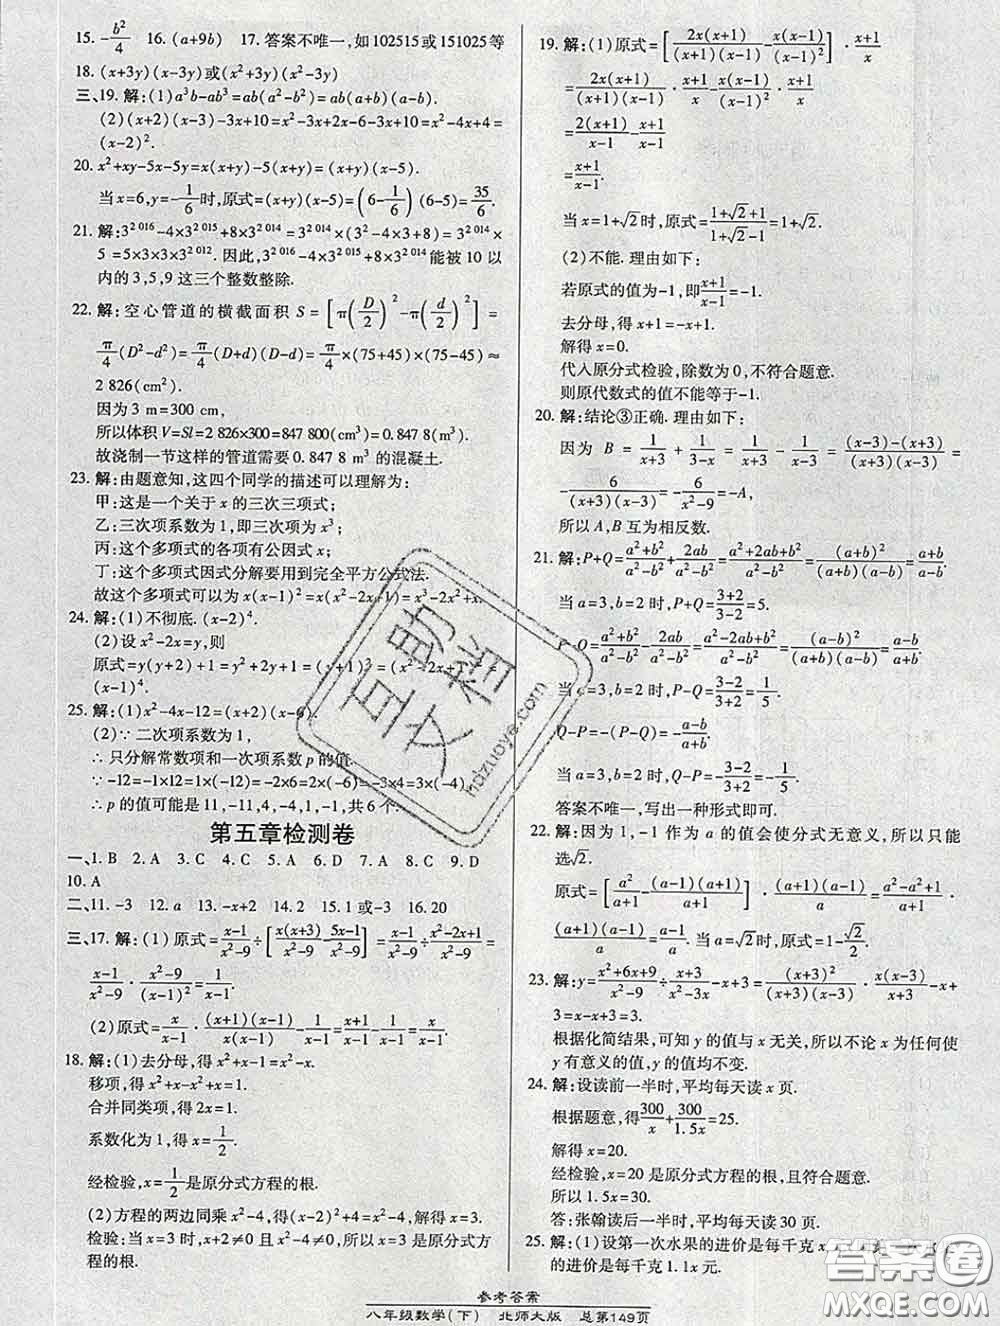 15. -b²/4  16. (a+9b)  17. 答案不唯一,如102515或151025等
18. (x+3y)(x-3y)或(x²+3y)(x²-3y)
三、19. 解:(1)a³b-ab³=ab(a²-b²)=ab(a+b)(a-b).
(2)(x+2)(x-3)-3x+10=x²-3x+2x-6-3x+10=x²-4x+4=
(x-2)².
20. x²+xy-5x-5y=x(x+y)-5(x+y)=(x+y)(x-5).
当x=6,y=-1/6时,原式=(x+y)(x-5)=(6-1/6)(6-5)=35/6.
21. 解:3^2016-4×3^2015+8×3^2014=3^2014×(3²-4×3+8)=3^2014×
5=5×3×3×3^2012. 因此,3^2016-4×3^2015+8×3^2014能被10以
内的3,5,9这三个整数整除.
22. 解:空心管道的横截面积S=[π(D/2)²-π(d/2)²]=
π/4(D²-d²)=π/4(D+d)(D-d)=π/4×(75+45)(75-45)≈
2 826(cm²).
因为3 m=300 cm,
所以体积V=Sl=2 826×300=847 800(cm³)=0.847 8(m³).
故浇制一节这样的管道需要0.847 8 m³的混凝土.
23. 解:由题意知,这四个同学的描述可以理解为:
甲:这是一个关于x的三次三项式;
乙:三次项系数为1,即三次项为x³;
丙:这个多项式的各项有公因式x;
丁:这个多项式因式分解要用到完全平方公式法.
故这个多项式可以为x(x-1)²=x(x²-2x+1)=x³-2x²+x.
24. 解:(1)不彻底. (x-2)⁴.
(2)设x²-2x=y,则
原式=y(y+2)+1=y²+2y+1=(y+1)²=(x²-2x+1)²=
(x-1)⁴.
25. 解:(1)x²-4x-12=(x+2)(x-6).
(2)∵二次项系数为1,
∴只分解常数项和一次项系数p的值.
∵-12=-1×12=1×(-12)=-2×6=2×(-6)=-3×4=3×(-4),
∴p的值可能是11,-11,4,-4,1,-1,共6个.
第五章检测卷
一、1. B  2. A  3. C  4. C  5. A  6. D  7. A  8. C  9. D
10. A
二、11. -3  12. a  13. -x+2  14. 2  15. 1或-3  16. 20
三、17. 解:(1)原式=(x-1)/(x²-9)÷[x(x+3)/(x²-9)-(5x-1)/(x²-9)]=(x-1)/(x²-9)÷(x²-2x+1)/(x²-9)=
(x-1)/(x²-9)·(x²-9)/(x-1)²=1/(x-1).
(2)原式=x/(x-1)·(x+1)(x-1)/x(x-1)-1/(x-1)=(x+1)/(x-1)-1/(x-1)=x/(x-1).
18. 解:(1)去分母,得x²+x-1=x²-x.
移项,得x²-x²+x+x=1.
合并同类项,得2x=1.
系数化为1,得x=1/2.
经检验,x=1/2是原分式方程的根.
(2)方程的两边同乘x²-4,得(x-2)²+4=x²-4,解得x=3.
检验:当x=3时,x+2≠0且x²-4≠0,所以x=3是原分式方
程的根.
19. 解:(1)原式=[2x(x+1)/(x+1)(x-1)-x(x-1)/(x-1)²]·(x+1)/x
=2x(x+1)/(x+1)(x-1)·(x+1)/x-x(x-1)/(x-1)²·(x+1)/x
=2(x+1)/(x-1)-(x+1)/(x-1)
=(x+1)/(x-1).
当x=1+√2时,原式=(1+√2+1)/(1+√2-1)=1+√2.
(2)不能. 理由如下:
若原式的值为-1,即(x+1)/(x-1)=-1.
去分母,得x+1=-x+1.
解得x=0.
代入原分式检验,除数为0,不符合题意.
则原代数式的值不能等于-1.
20. 解:结论③正确. 理由如下:
因为B=1/(x+3)+1/(3-x)=1/(x+3)-1/(x-3)=((x-3)-(x+3))/(x+3)(x-3)=
-6/(x+3)(x-3)=-6/(x²-9)=-A,
所以A,B互为相反数.
21. 解:P+Q=(a²+b²)/(a²-b²)+2ab/(a²-b²)=(a²+2ab+b²)/(a²-b²)=(a+b)²/(a+b)(a-b)=(a+b)/(a-b).
当a=3,b=2时,P+Q=(3+2)/(3-2)=5.
P-Q=(a²+b²)/(a²-b²)-2ab/(a²-b²)=(a²-2ab+b²)/(a²-b²)=(a-b)²/(a+b)(a-b)=(a-b)/(a+b).
当a=3,b=2时,P-Q=(3-2)/(3+2)=1/5.
Q-P=-(P-Q)=-(a-b)/(a+b).
当a=3,b=2时,Q-P=-(3-2)/(3+2)=-1/5.
答案不唯一,写出一种形式即可.
22. 解:因为1,-1作为a的值会使分式无意义,所以只能
选√2.
原式=[a²/(a+1)-(a-1)(a+1)/(a+1)]·(a+1)(a-1)/a=(a²-a²+1)/(a+1)·
(a+1)(a-1)/a=(a-1)/a. 当a=√2时,原式=1-√2/2.
23. 解:y=(x²+6x+9)/(x²-9)÷(x+3)/(x²-3x)-x+3=(x+3)²/(x+3)(x-3)·x(x-3)/(x+3)-x+
3=x-x+3=3.
根据化简结果,可知y的值与x无关,所以不论x为任何
使y有意义的值,y的值均不变.
24. 解:设读前一半时,平均每天读x页.
根据题意,得300/x+300/1.5x=25.
解得x=20.
经检验,x=20是原分式方程的根,且符合题意.
所以1.5x=30.
答:张翰读后一半时,平均每天读30页.
25. 解:(1)设第一次水果的进价是每千克x
的进价是每千克1.1x元.
参考答案
八年级数学(下)  北师大版  总第149页
互助文档
hdzuoye.com
答案圈
MXQE.COM